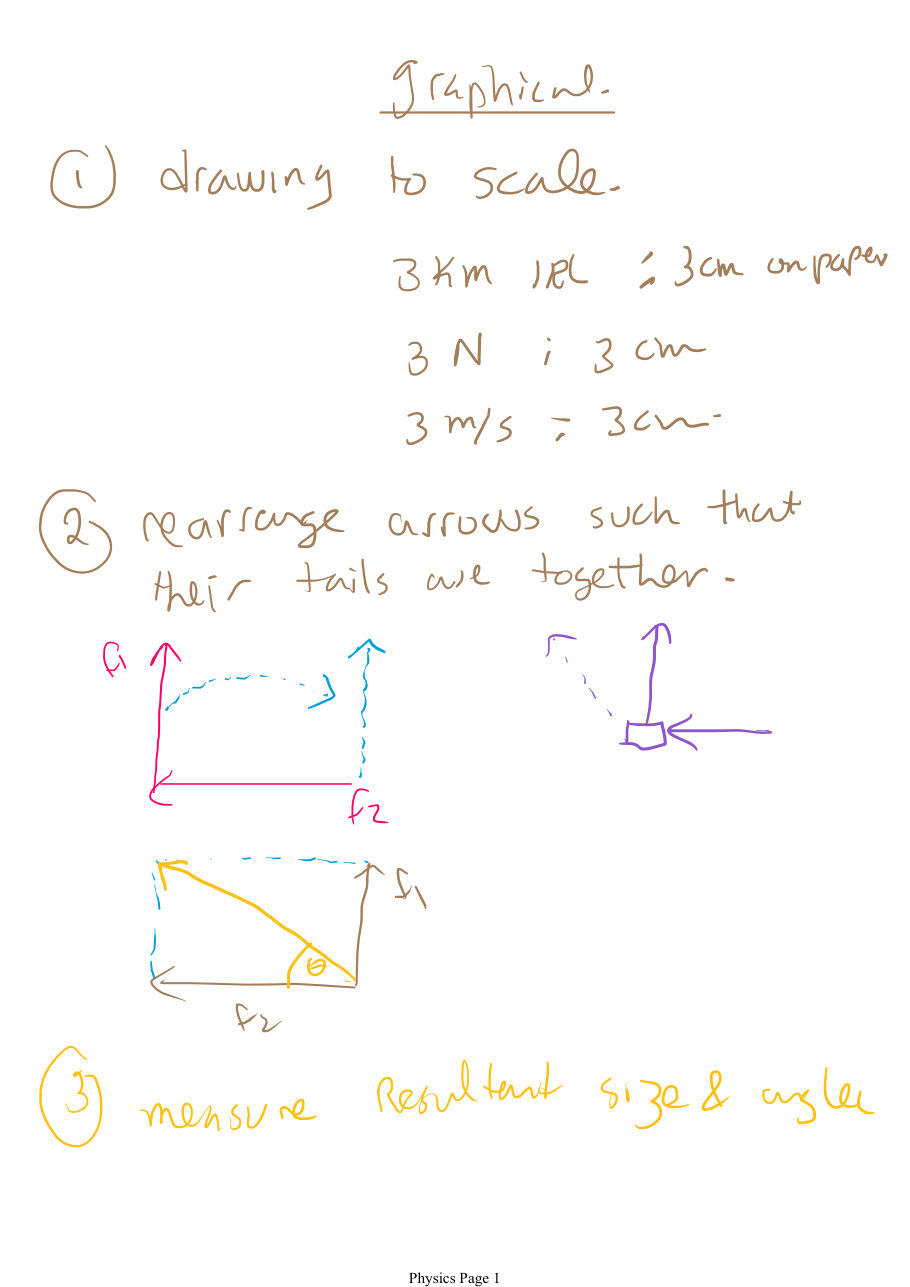 graphical.
1 drawing to scale.
3 Km IRL : 3 cm on paper
3 N : 3 cm
3 m/s : 3 cm
2 rearrange arrows such that
their tails are together.
F1
F2
F1
θ
F2
3 measure Resultant size & angle
Physics Page 1